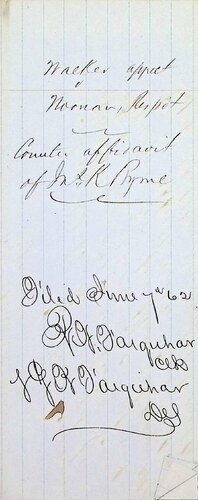 Walker appet
v
Noonan, Respt
Counter affidavit
of Jno K Byrne
Filed June 7th 62
R. F. Farquhar
Clk
J G F Farquhar